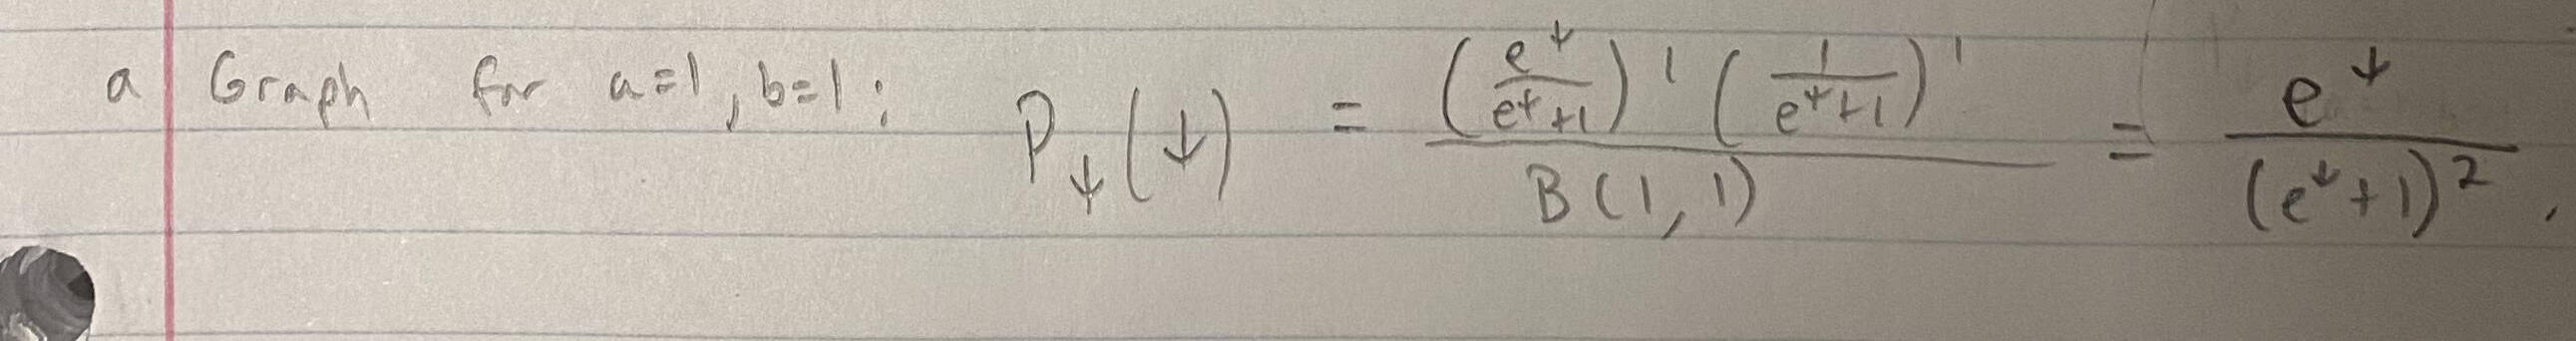 a Graph for a=1, b=1: P_ψ(ψ) = (e^ψ/(e^ψ+1))^1 (1/(e^ψ+1))^1 / B(1,1) = e^ψ/(e^ψ+1)^2.